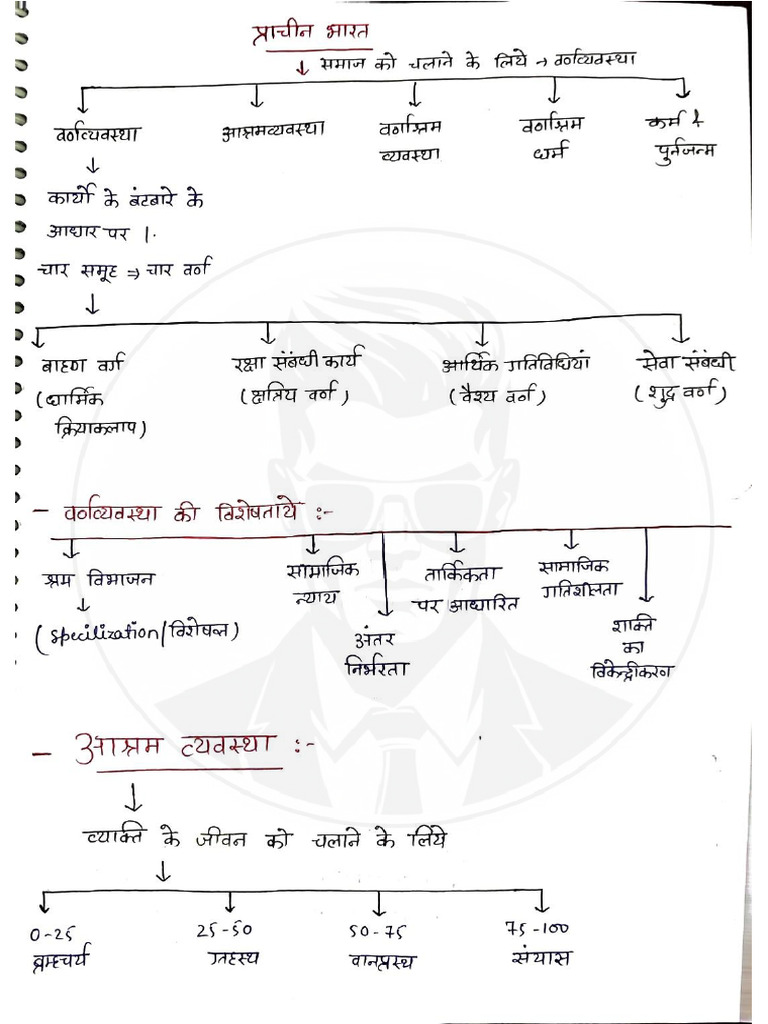 प्राचीन भारत
समाज को चलाने के लिये → वर्णव्यवस्था
वर्णव्यवस्था आश्रमव्यवस्था वर्णाश्रम वर्णाश्रम कर्म &
व्यवस्था धर्म पुर्नजन्म
कार्यो के बंटबारे के
आधार पर ।.
चार समूह ⇒ चार वर्ण
ब्राह्मण वर्ग रक्षा संबंधी कार्य आर्थिक गतिविधियां सेवा संबंधी
(धार्मिक (क्षत्रिय वर्ण) (वैश्य वर्ण) (शुद्र वर्ण)
क्रियाकलाप)
- वर्णव्यवस्था की विशेषताये :-
श्रम विभाजन सामाजिक तार्किकता सामाजिक
न्याय पर आधारित गतिशीलता
(specilization/विशेषता) अंतर शक्ति
निर्भरता का
विकेन्द्रीकरण
- आश्रम व्यवस्था :-
व्याक्ति के जीवन को चलाने के लिये
0-25 25-50 50-75 75-100
ब्रम्हचर्य ग्रहस्थ वानप्रस्थ संयास